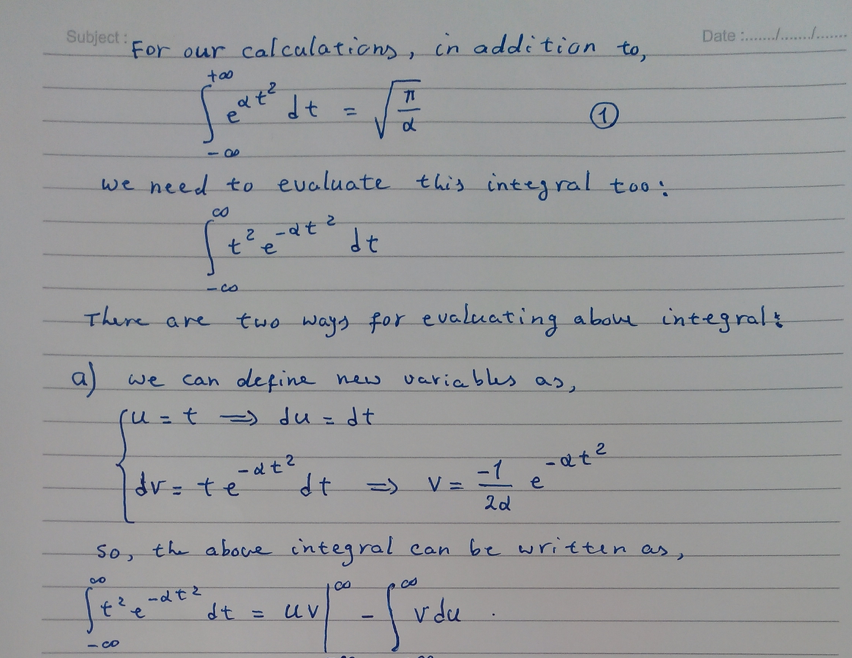 Subject : For our calculations, in addition to, Date :......./......./.......
∫_{-∞}^{+∞} e^{αt²} dt = √(π/α) ①
we need to evaluate this integral too:
∫_{-∞}^{∞} t² e^{-αt²} dt
There are two ways for evaluating above integral:
a) we can define new variables as,
{ u = t ⟹ du = dt
dv = t e^{-αt²} dt ⟹ v = \frac{-1}{2α} e^{-αt²}
so, the above integral can be written as,
∫_{-∞}^{∞} t² e^{-αt²} dt = uv |_{-∞}^{∞} - ∫_{-∞}^{∞} v du .